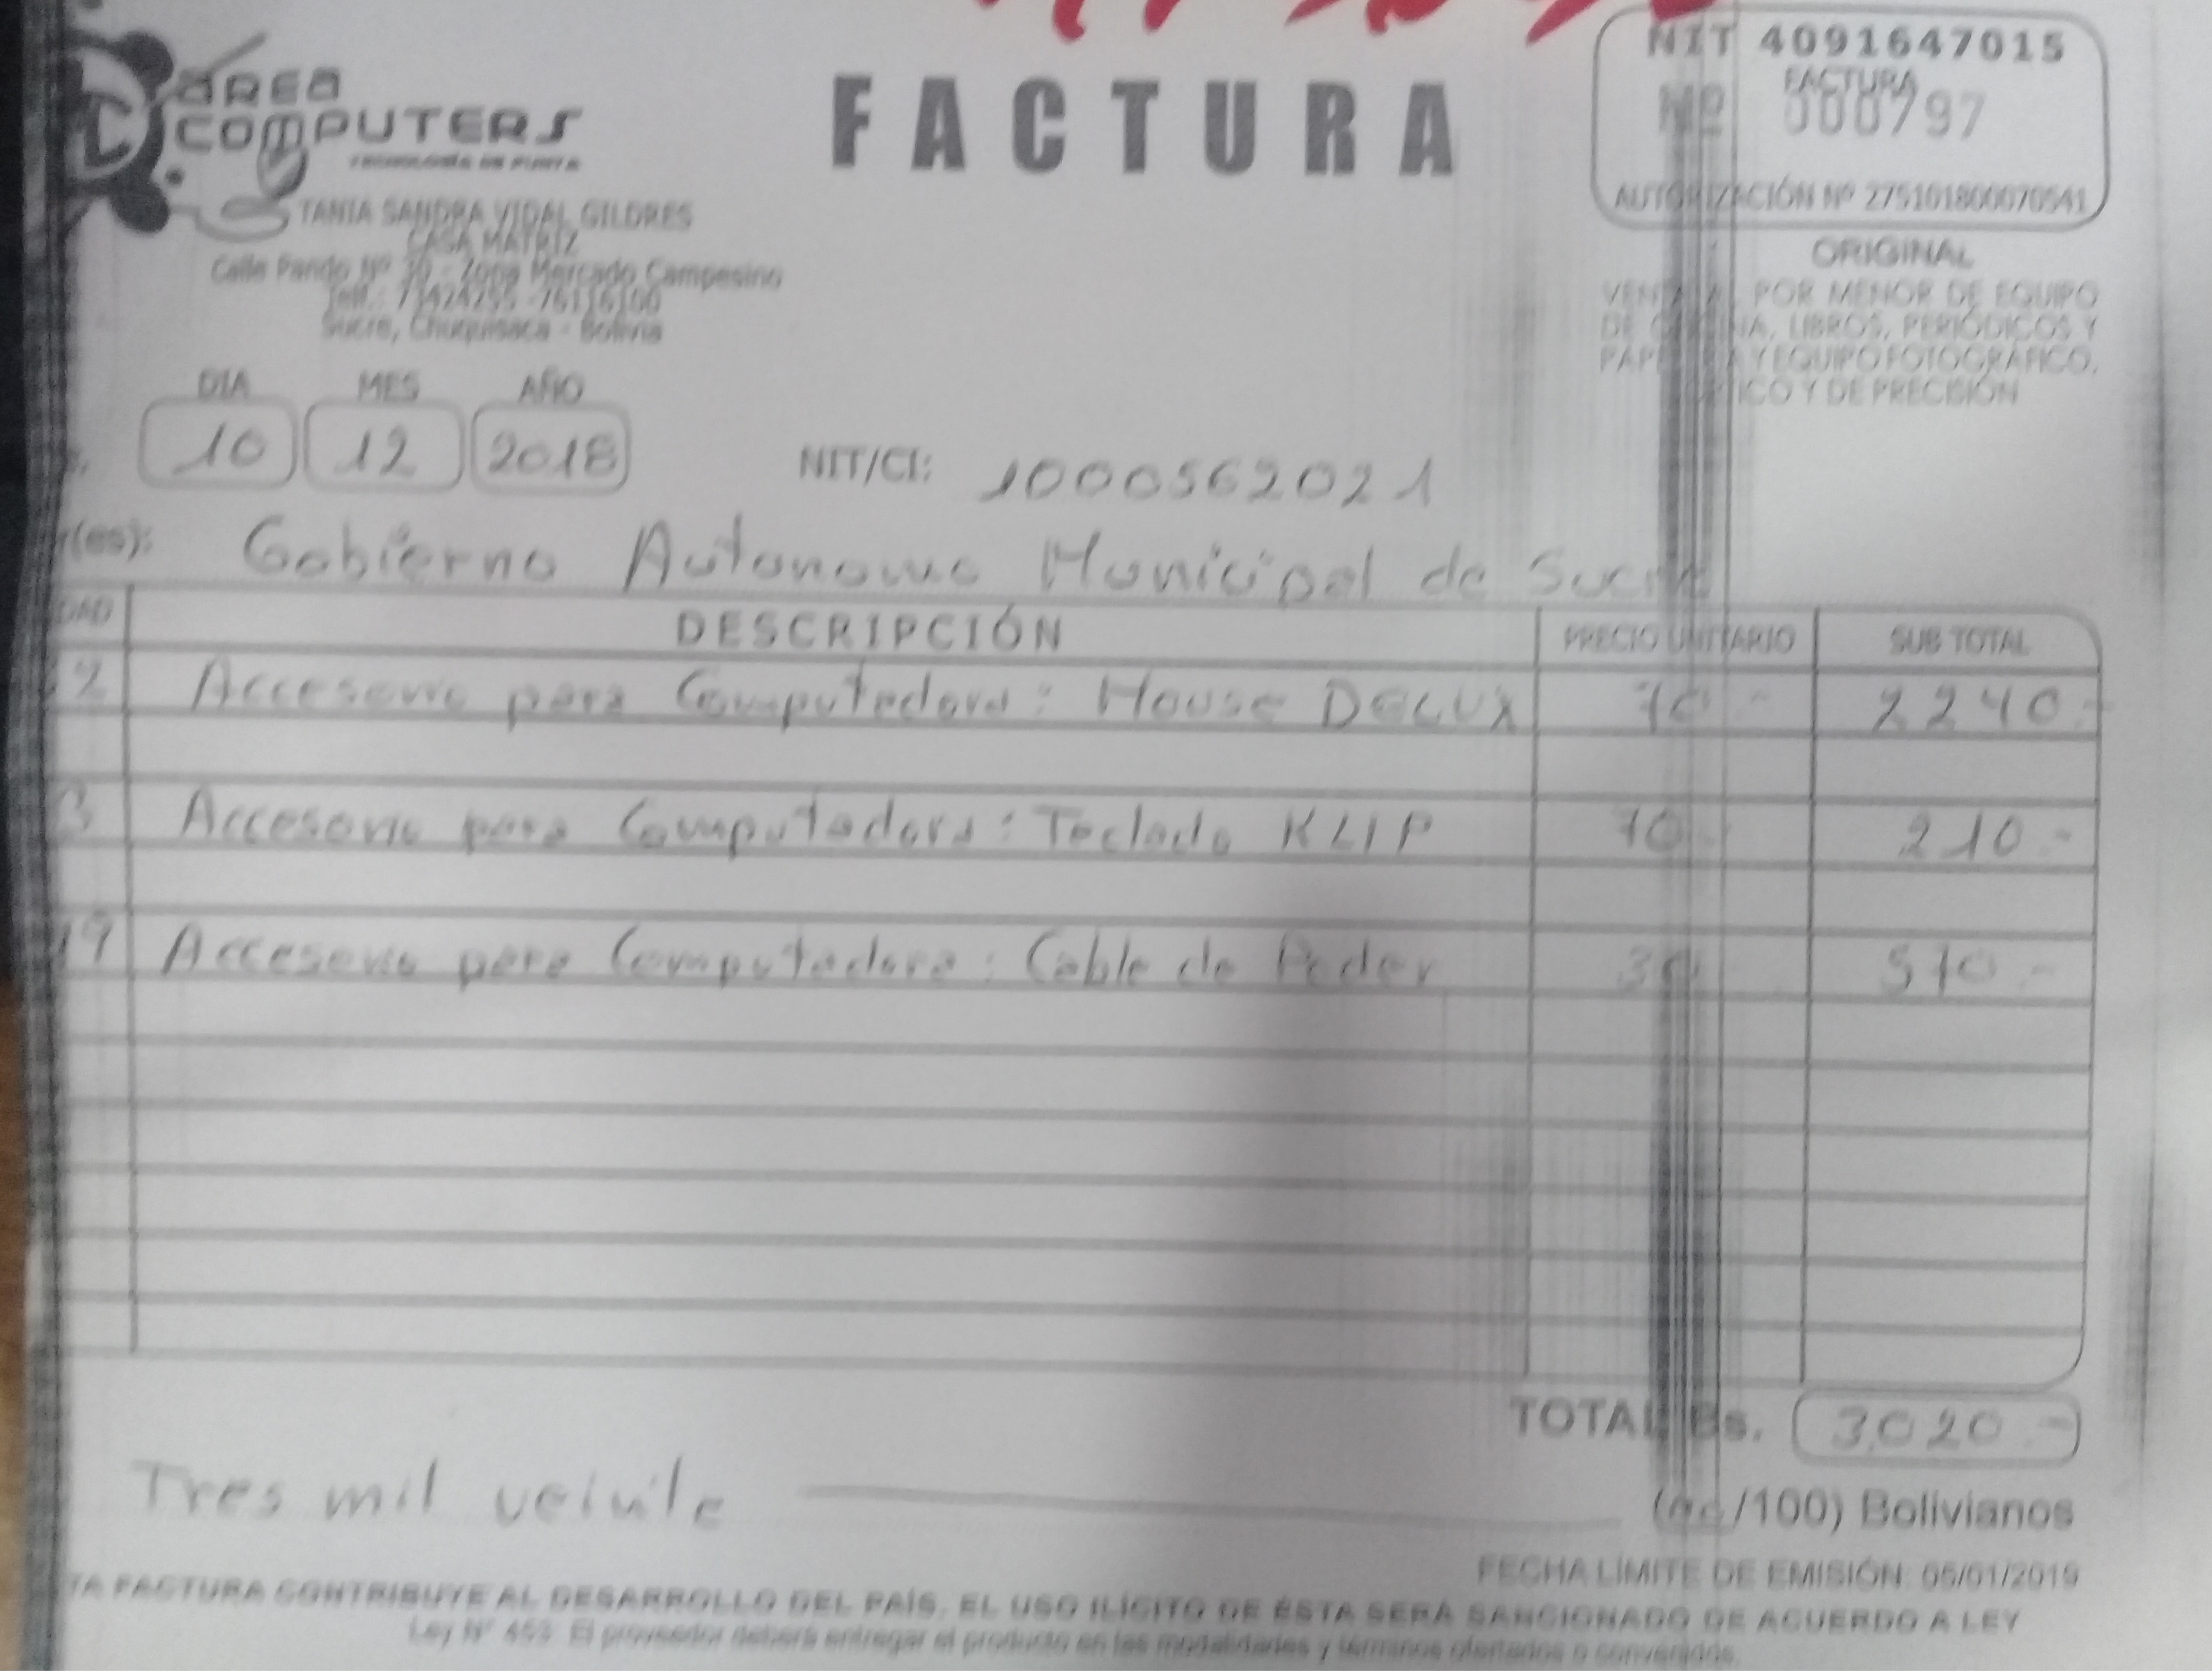 AREA
COMPUTERS
TECNOLOGÍA DE PUNTA
FACTURA
NIT 4091647015
FACTURA
Nº 000797
AUTORIZACIÓN Nº 275101800070541
TANIA SANDRA VIDAL GILDRES
CASA MATRIZ
Calle Pando Nº 30 - Zona Mercado Campesino
Telf.: 73424255 -76116100
Sucre, Chuquisaca - Bolivia
ORIGINAL
VENTA AL POR MENOR DE EQUIPO
DE OFICINA, LIBROS, PERIÓDICOS Y
PAPELERIA Y EQUIPO FOTOGRÁFICO,
ÓPTICO Y DE PRECISIÓN
DIA MES AÑO
10 12 2018
NIT/CI: 1000562021
r(es): Gobierno Autonomo Municipal de Sucre
DAD DESCRIPCIÓN PRECIO UNITARIO SUB TOTAL
2 Accesorio para Computadora: Mouse DELUX 70.- 2240.-
3 Accesorio para Computadora: Teclado KLIP 70.- 210.-
19 Accesorio para Computadora: Cable de Poder 30 570.-
TOTAL Bs. 3020.-
Tres mil veinte
(00/100) Bolivianos
FECHA LÍMITE DE EMISIÓN: 05/01/2019
TA FACTURA CONTRIBUYE AL DESARROLLO DEL PAÍS. EL USO ILÍCITO DE ÉSTA SERÁ SANCIONADO DE ACUERDO A LEY
Ley Nº 453: El proveedor deberá entregar el producto en las modalidades y términos ofertados o convenidos.